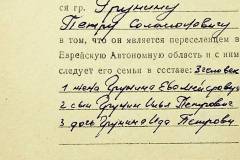 ся гр. Грунину
Петру Соломоновичу
в том, что он является переселенцем в
Еврейскую Автономную область и с ним
следует его семья в составе: 3 человек
1 жена Грунина
2 сын Грунин Илья Петрович
3 дочь Грунина Ида Петровн